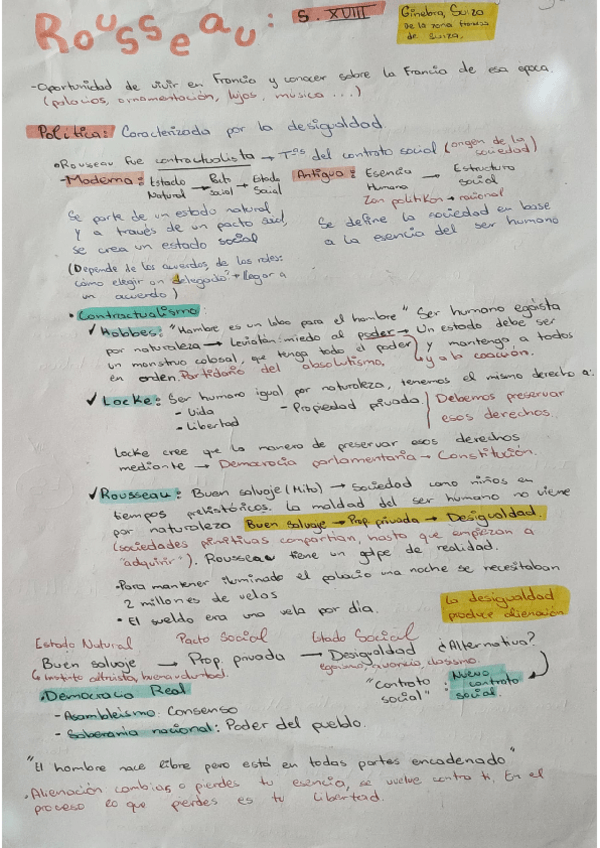 Rousseau: S. XVIII
Ginebra, Suiza
De la zona francesa
de Suiza.
-Oportunidad de vivir en Francia y conocer sobre la Francia de esa época.
(palacios, ornamentación, lujos, musica ...)
Política: Caracterizada por la desigualdad
•Rousseau fue contractualista → Tªs del contrato social (origen de la sociedad)
-Moderna: Estado Natural → Pacto social → Estado Social
Antigua: Esencia Humana → Estructura social
Zon politikon → racional
Se parte de un estado natural
y a través de un pacto social,
se crea un estado social
Se define la sociedad en base
a la esencia del ser humano
(Depende de los acuerdos, de los roles:
cómo elegir un delegado? + llegar a
un acuerdo)
• Contractualismo:
✓ Hobbes: "Hombre es un lobo para el hombre" Ser humano egoísta
por naturaleza → Leviatán: miedo al poder → Un estado debe ser
un monstruo colosal, que tenga todo el poder y mantenga a todos
en orden. Partidario del absolutismo, y a la coacción.
✓ Locke: Ser humano igual por naturaleza, tenemos el mismo derecho a:
- Vida - Propiedad privada
- Libertad
Debemos preservar
esos derechos.
Locke cree que la manera de preservar esos derechos
mediante → Democracia parlamentaria → Constitución.
✓ Rousseau: Buen salvaje (Mito) → Sociedad como niños en
tiempos prehistóricos. La maldad del ser humano no viene
por naturaleza Buen salvaje → Prop. privada → Desigualdad.
(sociedades primitivas compartían, hasta que empiezan a
"adquirir"). Rousseau tiene un golpe de realidad.
-Para mantener iluminado el palacio una noche se necesitaban
2 millones de velas
• El sueldo era una vela por día.
La desigualdad
produce alienación
Estado Natural Pacto Social Estado Social
Buen salvaje → Prop. privada → Desigualdad ¿Alternativa?
↳ Instinto altruista, buena voluntad. egoísmo, avaricia, clasismo.
"Contrato social" : Nuevo contrato social.
•Democracia Real
- Asambleísmo: Consenso
- Soberanía nacional: Poder del pueblo.
"El hombre nace libre pero está en todas partes encadenado"
. Alienación cambias o pierdes tu esencia, se vuelve contra ti. En el
proceso lo que pierdes es tu libertad.